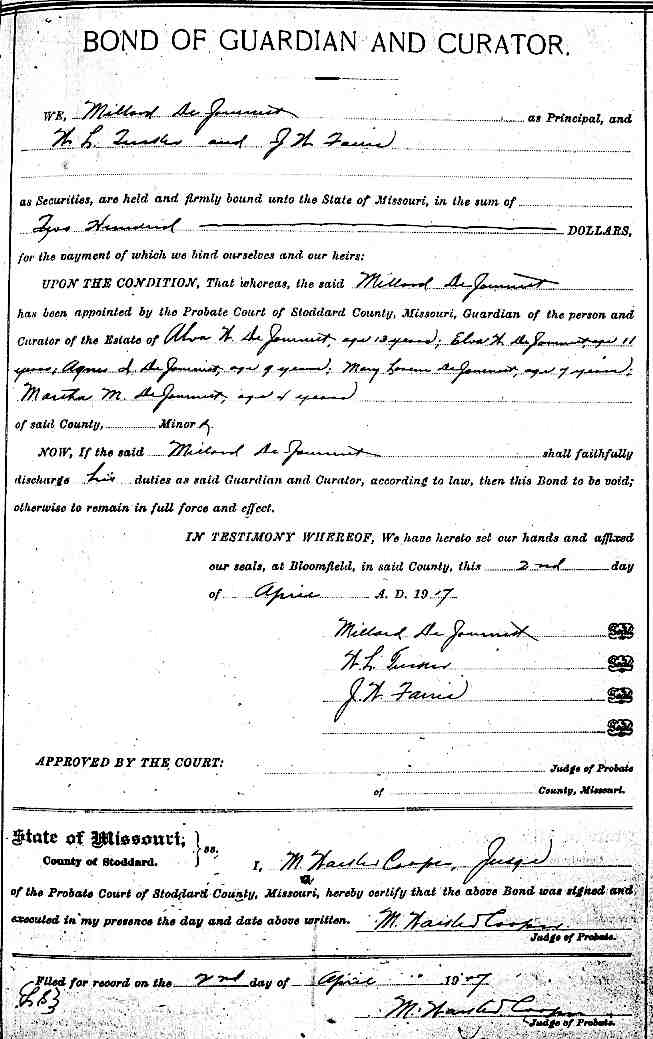 BOND OF GUARDIAN AND CURATOR.
WE, Millard De Journett as Principal, and
W L Turner and J W Farris
as Securities, are held and firmly bound unto the State of Missouri, in the sum of
Two Hundred DOLLARS,
for the payment of which we bind ourselves and our heirs:
UPON THE CONDITION, That whereas, the said Millard De Journett
has been appointed by the Probate Court of Stoddard County, Missouri, Guardian of the person and
Curator of the Estate of Alva W. De Journett, age 13 years; Elva H. De Journett, age 11
years; Agnes De Journett, age 9 years; Mary De Journett, age 7 years;
Martha M. De Journett, age 4 years
of said County, Minors.
NOW, If the said Millard De Journett shall faithfully
discharge his duties as said Guardian and Curator, according to law, then this Bond to be void;
otherwise to remain in full force and effect.
IN TESTIMONY WHEREOF, We have hereto set our hands and affixed
our seals, at Bloomfield, in said County, this 2nd day
of April A. D. 1917
Millard De Journett
W L Turner
J. W Farris
APPROVED BY THE COURT:
Judge of Probate
of County, Missouri.
State of Missouri,
County of Stoddard. ss.
I, M. Cooper, Judge
of the Probate Court of Stoddard County, Missouri, hereby certify that the above Bond was signed and
executed in my presence the day and date above written. M. Cooper
Judge of Probate.
Filed for record on the 2nd day of April 1917
M. Cooper
Judge of Probate.